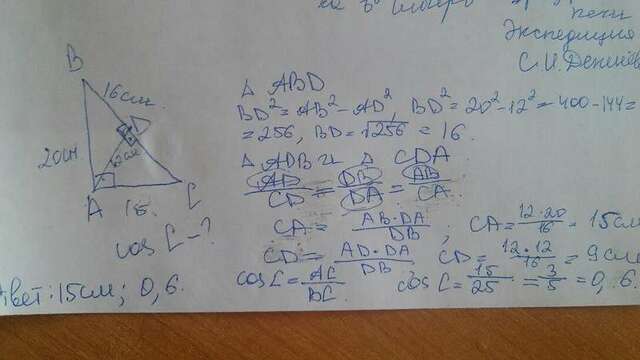 на
Экспедиция
С. И. Дежнёв
B
16 см.
D
20 см.
12 см
A
15.
C
cos C - ?
Δ ABD
BD² = AB² - AD², BD² = 20² - 12² = 400 - 144 =
= 256, BD = √256 = 16.
Δ ADB и Δ CDA
AD/CD = DB/DA = AB/CA
CA = AB·DA/DB ; CA = 12·20/16 = 15 см
CD = AD·DA/DB CD = 12·12/16 = 9 см
cos C = AC/BC. cos C = 15/25 = 3/5 = 0,6.
Ответ: 15 см; 0,6.